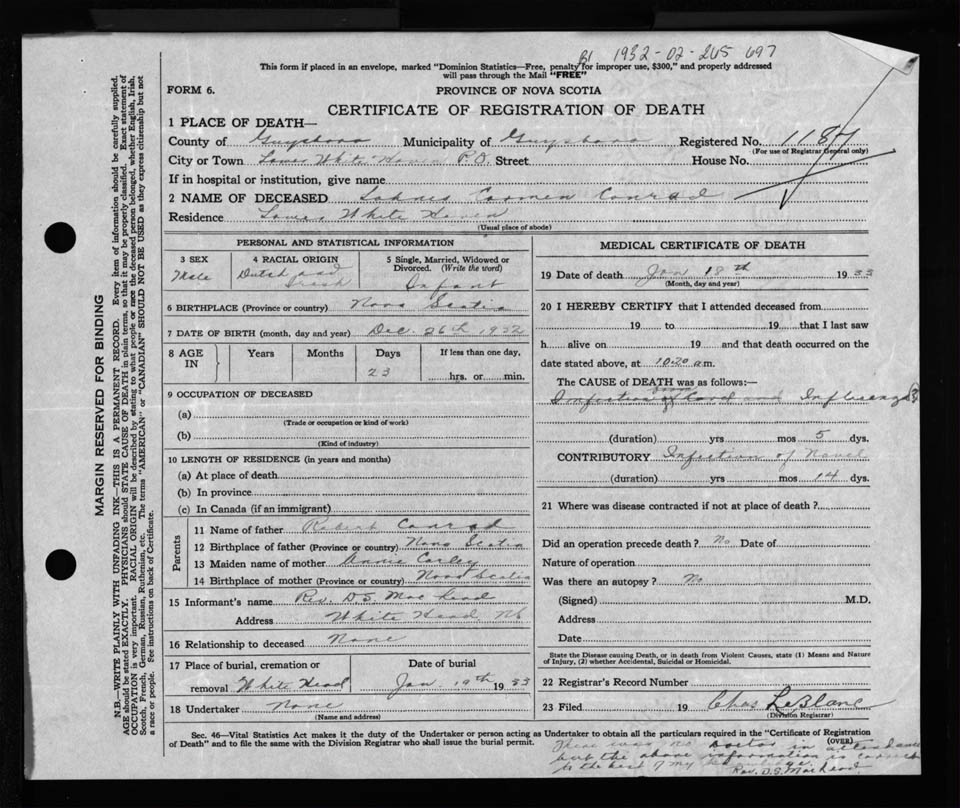 B1 1932-02-265 697
This form if placed in an envelope, marked "Dominion Statistics—Free, penalty for improper use, $300," and properly addressed
will pass through the Mail "FREE"
FORM 6.
PROVINCE OF NOVA SCOTIA
CERTIFICATE OF REGISTRATION OF DEATH
1 PLACE OF DEATH—
County of Guysboro Municipality of Guysboro Registered No. 1187
(For use of Registrar General only)
City or Town Lower White Haven P.O. Street House No.
If in hospital or institution, give name
2 NAME OF DECEASED Carmen Conrad
Residence Lower White Haven
(Usual place of abode)
PERSONAL AND STATISTICAL INFORMATION
3 SEX
Male
4 RACIAL ORIGIN
Dutch and
Irish
5 Single, Married, Widowed or
Divorced. (Write the word)
Infant
6 BIRTHPLACE (Province or country) Nova Scotia
7 DATE OF BIRTH (month, day and year) Dec. 26th 1932
8 AGE
IN
Years
Months
Days
23
If less than one day,
hrs. or min.
9 OCCUPATION OF DECEASED
(a)
(Trade or occupation or kind of work)
(b)
(Kind of industry)
10 LENGTH OF RESIDENCE (in years and months)
(a) At place of death
(b) In province
(c) In Canada (if an immigrant)
Parents
11 Name of father Robert Conrad
12 Birthplace of father (Province or country) Nova Scotia
13 Maiden name of mother Annie
14 Birthplace of mother (Province or country) Nova Scotia
15 Informant's name Rev. D.S. MacLeod
Address White Head, NS
16 Relationship to deceased None
17 Place of burial, cremation or
removal White Head
Date of burial
Jan. 19th 1933
18 Undertaker None
(Name and address)
MEDICAL CERTIFICATE OF DEATH
19 Date of death Jan 18th 1933
(Month, day and year)
20 I HEREBY CERTIFY that I attended deceased from
19 to 19 that I last saw
h alive on 19 and that death occurred on the
date stated above, at 10.20 a.m.
The CAUSE of DEATH was as follows:—
Infection of Cord and Influenza
(duration) yrs mos 5 dys.
CONTRIBUTORY Infection of Navel
(duration) yrs mos 14 dys.
21 Where was disease contracted if not at place of death?
Did an operation precede death? No Date of
Nature of operation
Was there an autopsy? No
(Signed) M.D.
Address
Date
State the Disease causing Death, or in death from Violent Causes, state (1) Means and Nature
of Injury, (2) whether Accidental, Suicidal or Homicidal.
22 Registrar's Record Number
23 Filed 19 Chas LeBlanc
(Division Registrar)
Sec. 46—Vital Statistics Act makes it the duty of the Undertaker or person acting as Undertaker to obtain all the particulars required in the "Certificate of Registration
of Death" and to file the same with the Division Registrar who shall issue the burial permit.
(OVER)
There was no Doctor in attendance
but the above information is correct
to the best of my knowledge.
Rev. D.S. MacLeod.
MARGIN RESERVED FOR BINDING
N.B.—WRITE PLAINLY WITH UNFADING INK—THIS IS A PERMANENT RECORD. Every item of information should be carefully supplied.
AGE should be stated EXACTLY. PHYSICIANS should STATE CAUSE OF DEATH in plain terms, so that it may be properly classified. Exact statement of
OCCUPATION is very important. RACIAL ORIGIN will be described by stating to what people or race the deceased person belonged, whether English, Irish,
Scotch, French, German, Russian, Ruthenian, etc. The terms "AMERICAN" or "CANADIAN" SHOULD NOT BE USED as they express citizenship but not
a race or people. See instructions on back of Certificate.